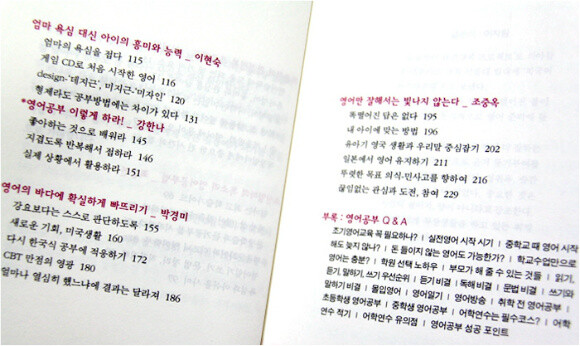 엄마 욕심 대신 아이의 흥미와 능력 _ 이현숙
엄마의 욕심을 접다 115
게임 CD로 처음 시작한 영어 116
design-'데지근', 미지근-'미자인' 120
형제라도 공부방법에는 차이가 있다 131
*영어공부 이렇게 하라! _ 강한나
좋아하는 것으로 배워라 145
지겹도록 반복해서 접하라 146
실제 상황에서 활용하라 151
영어의 바다에 확실하게 빠뜨리기 _ 박경미
강요보다는 스스로 판단하도록 155
새로운 기회, 미국생활 160
다시 한국식 공부에 적응하기 172
CBT 만점의 영광 180
얼마나 열심히 했느냐에 결과는 달라져 186
영어만 잘해서는 빛나지 않는다 _ 조중옥
똑떨어진 답은 없다 195
내 아이에 맞는 방법 196
유아기 영국 생활과 우리말 중심잡기 202
일본에서 영어 유지하기 211
뚜렷한 목표 의식·민사고를 향하여 216
끊임없는 관심과 도전, 참여 229
부록 : 영어공부 Q & A
조기영어교육 꼭 필요하나? | 실전영어 시작 시기 | 중학교 때 영어 시작
해도 늦지 않나? | 돈 들이지 않는 영어도 가능한가? | 학교수업만으로
영어는 충분? | 학원 선택 노하우 | 부모가 해 줄 수 있는 것들 | 읽기,
듣기, 말하기, 쓰기 우선순위 | 듣기 비결 | 독해 비결 | 문법 비결 | 쓰기와
말하기 비결 | 몰입영어 | 영어일기 | 영어방송 | 취학 전 영어공부 |
초등학생 영어공부 | 중학생 영어공부 | 어학연수는 필수코스? | 어학
연수 적기 | 어학연수 유의점 | 영어공부 성공 포인트